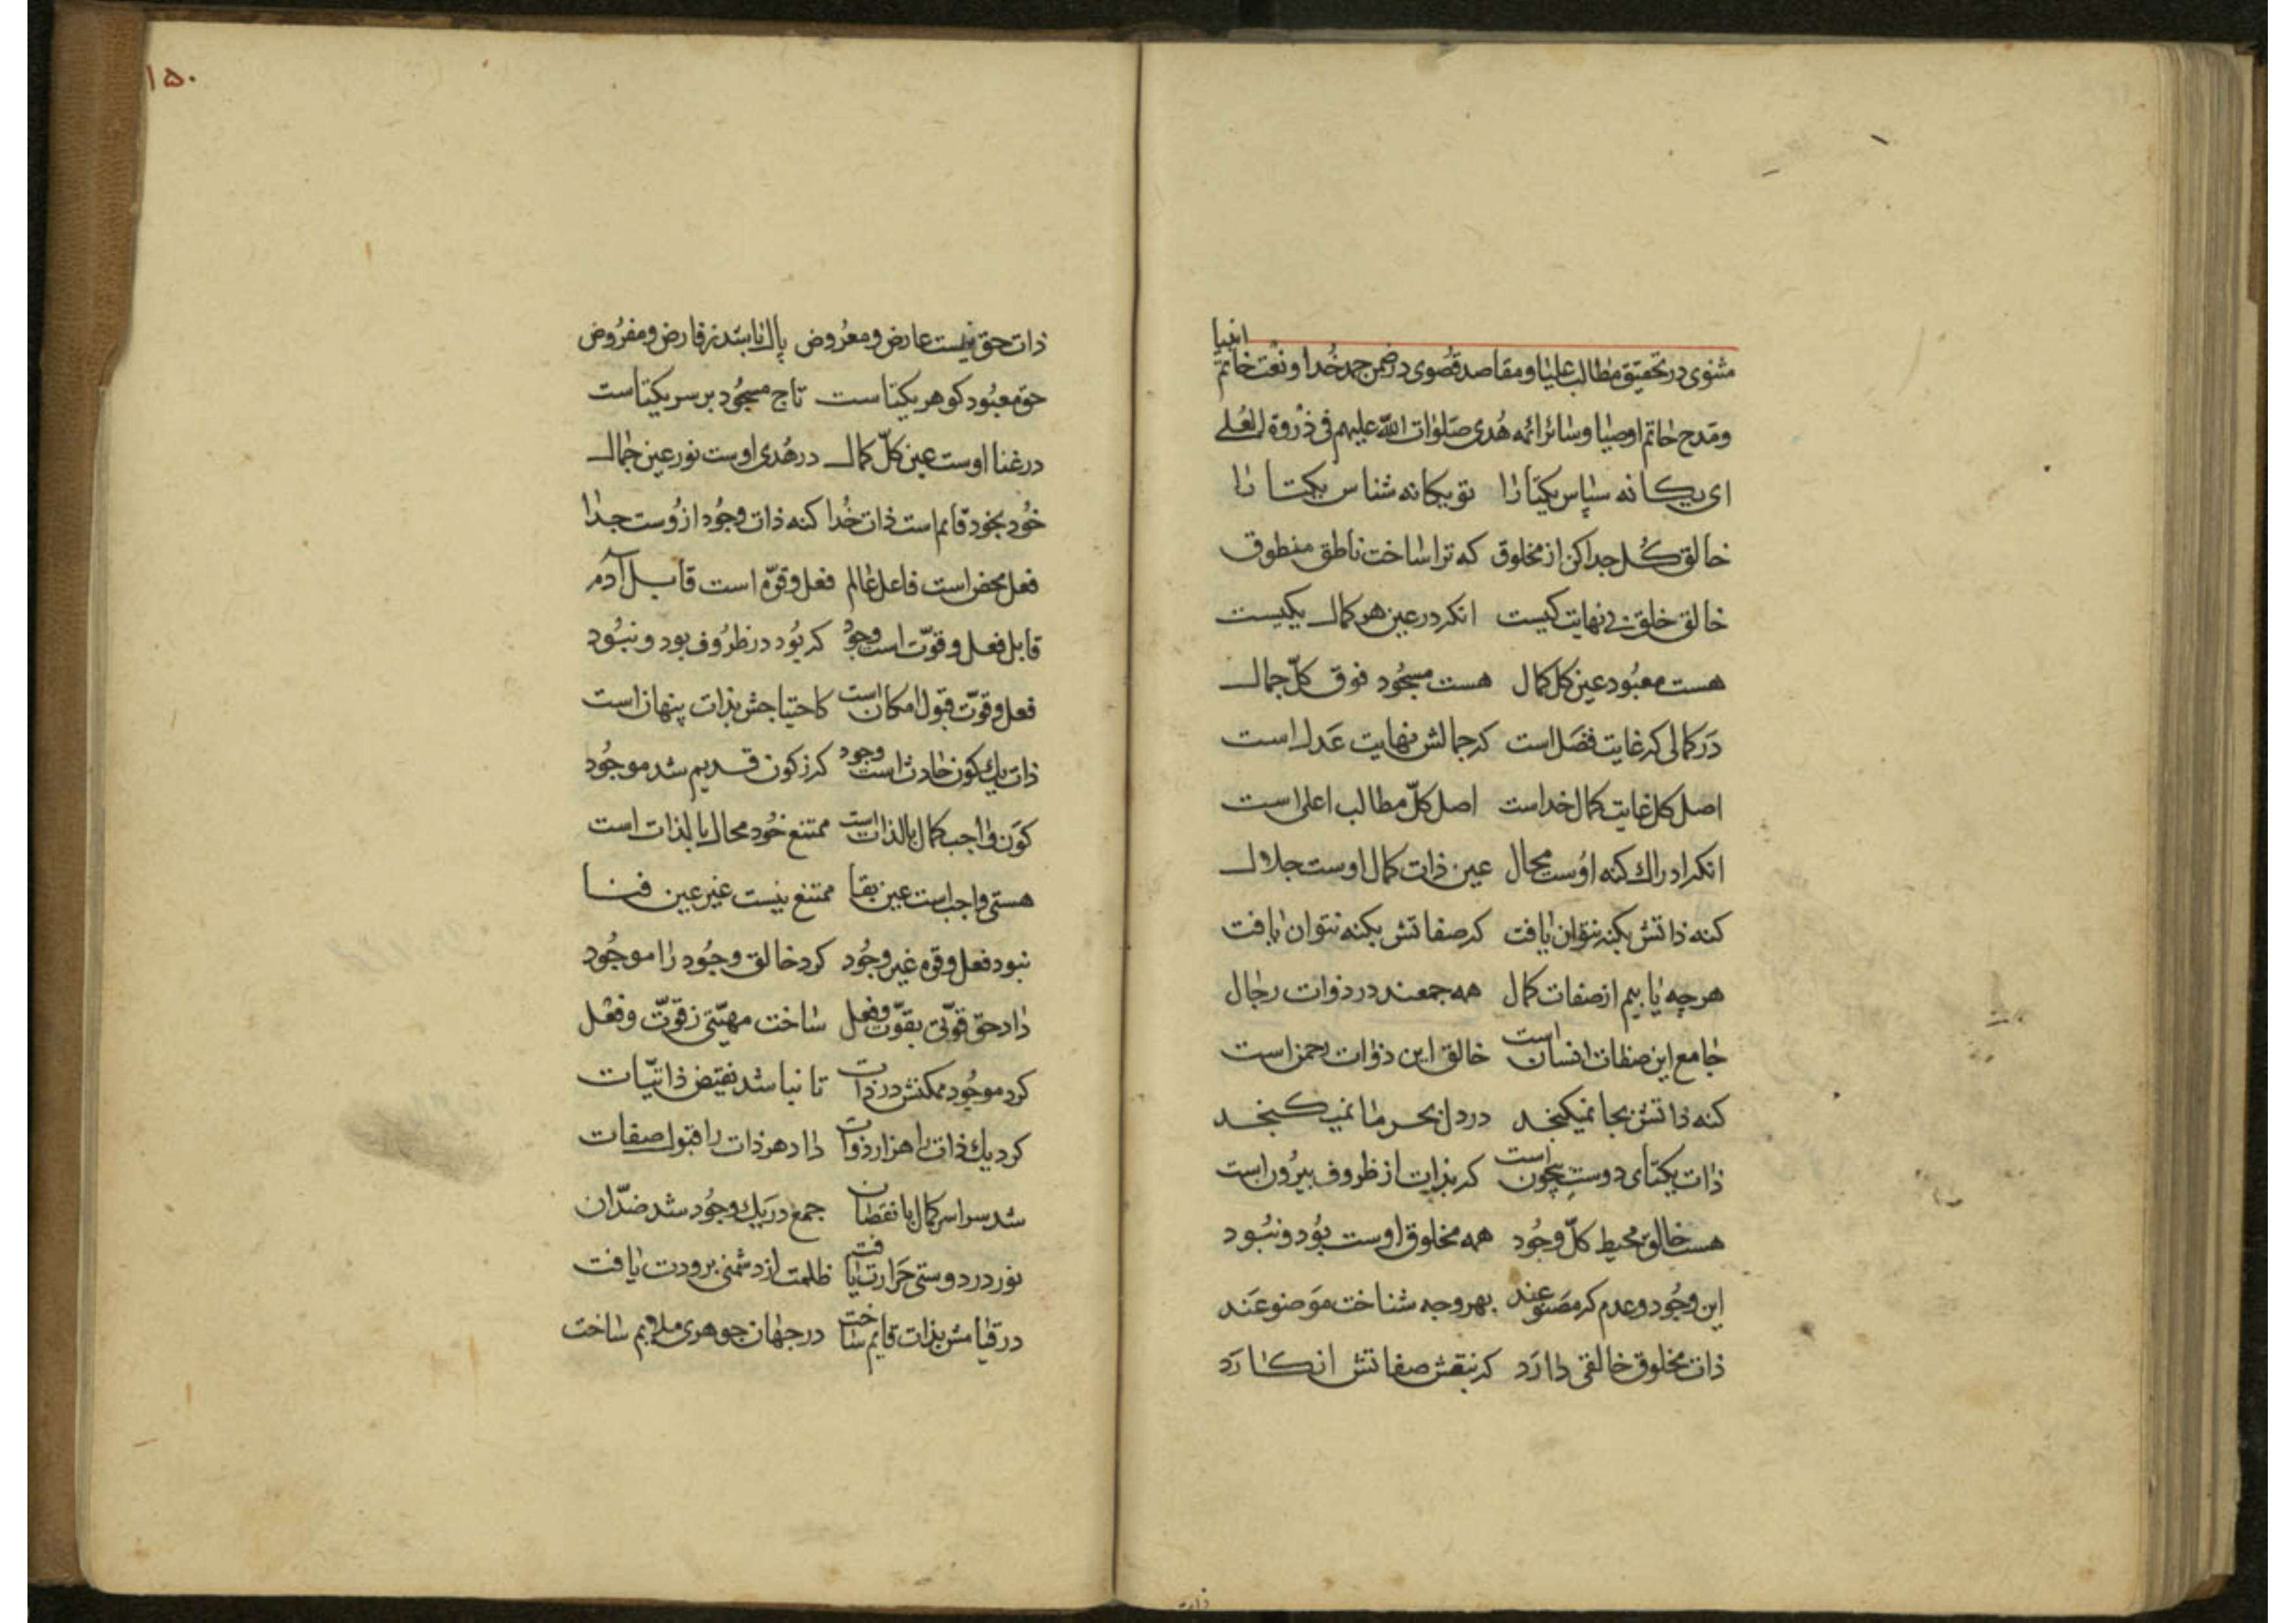 انبیا
مثنوی در تحقیق مطالب علیا و مقاصد قصوی در ضمن حمد خدا و نعت خاتم
و مدح خاتم اوصیا و سائر ائمه هدی صلوات الله علیهم فی ذروة العلے
ای یکانه سپاس یکتا را تو یکانه شناس یکتا را
خالق کل جدا کن از مخلوق که ترا ساخت ناطق منطوق
خالق خلق بی نهایت کیست انکه در عین هر کمال یکیست
هست معبود عین کل کمال هست مسجود فوق کلّ جمال
در کمالی که غایت فضل است که جمالش نهایت عدل است
اصل کل غایت کمال خداست اصل کلّ مطالب اعلی است
انکه ادراک کنه اوست محال عین ذات کمال اوست جلال
کنه ذاتش بکنه نتوان یافت که صفاتش بکنه نتوان یافت
هر چه یابیم از صفات کمال همه جمعند در ذوات رجال
جامع این صفات انسان است خالق این ذوات رحمن است
کنه ذاتش بجا نمیکنجد در دل بحر ما نمیکنجد
ذات یکتای دوست بیچون است که بذات از ظروف بیرون است
هست خالق محیط کلّ وجود همه مخلوق اوست بود و نبود
این وجود و عدم که مصنوعند بهر وجه شناخت موضوعند
ذات مخلوق خالقی دارد که بنقش صفاتش انکارد
ذات
۱۵۰
ذات حق نیست عارض و معروض پاک باشد ز فارض و مفروض
حق معبود کوهر یکتاست تاج مسجود بر سر یکتاست
در غنا اوست عین کلّ کمال در هدی اوست نور عین جمال
خود بخود قایم است ذات خدا کنه ذات وجود ازوست جدا
فعل محض است فاعل عالم فعل و قوّه است قابل آدم
قابل فعل و قوّت است وجود که بود در ظروف بود و نبود
فعل و قوّت قبول امکان است کاحتیاجش بذات پنهان است
ذات یک کون حادث است وجود کز کون قدیم شد موجود
کون واجب کمال بالذات است ممتنع خود محال بالذات است
هستی واجب است عین بقا ممتنع نیست غیر عین فنا
نبود فعل و قوه غیر وجود کرد خالق وجود را موجود
داد حق قوّتی بقوّت و فعل ساخت مهیّتی ز قوّت و فعل
کرد موجود ممکنش در ذات تا نباشد نقیض ذاتیّات
کرد یک ذات را هزار ذوات داد هر ذات را قبول صفات
شد سراسر کمال با نقصان جمع در یک وجود شد ضدّان
نور در دوستی حرارت یافت ظلمت از دشمنی برودت یافت
در قیامش بذات قایم ساخت در جهان جوهری ملایم ساخت